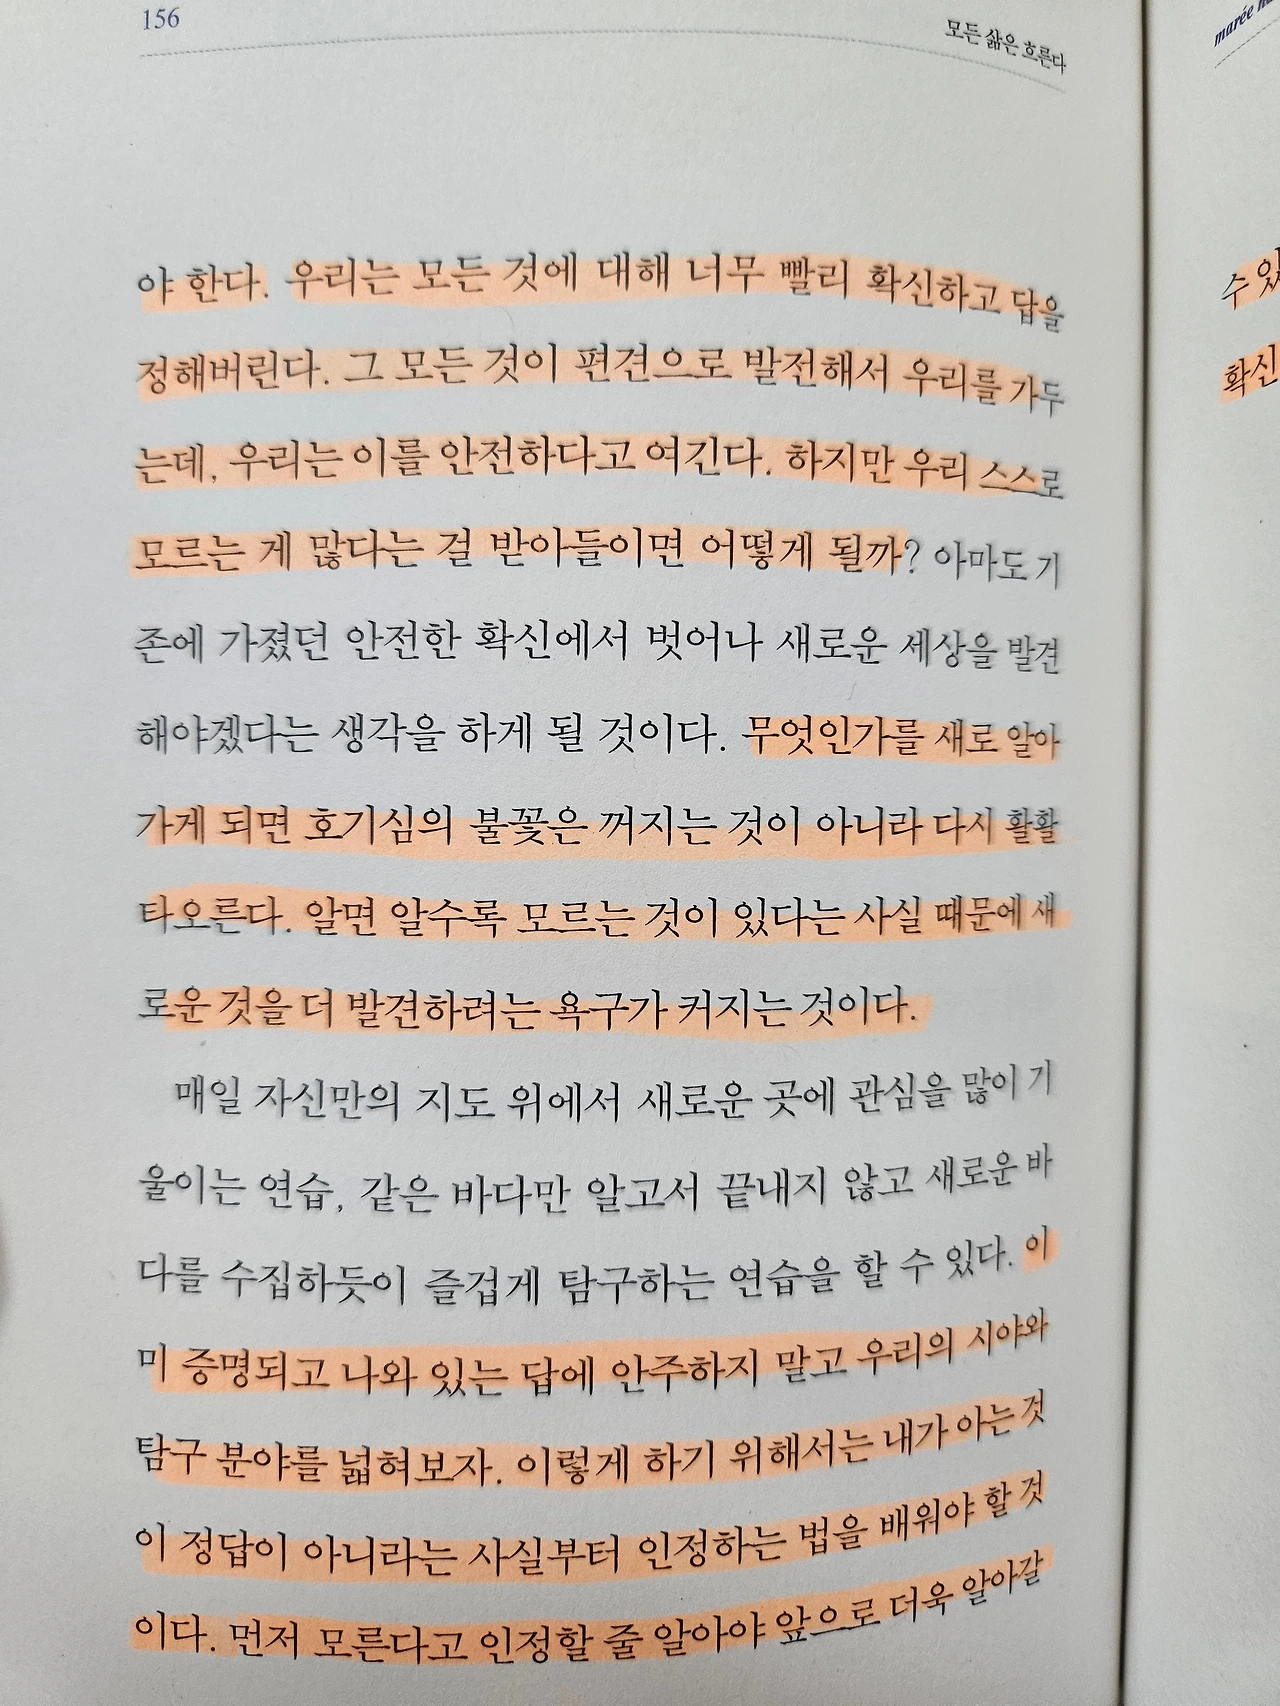 156
모든 삶은 흐른다
야 한다. 우리는 모든 것에 대해 너무 빨리 확신하고 답을
정해버린다. 그 모든 것이 편견으로 발전해서 우리를 가두
는데, 우리는 이를 안전하다고 여긴다. 하지만 우리 스스로
모르는 게 많다는 걸 받아들이면 어떻게 될까? 아마도 기
존에 가졌던 안전한 확신에서 벗어나 새로운 세상을 발견
해야겠다는 생각을 하게 될 것이다. 무엇인가를 새로 알아
가게 되면 호기심의 불꽃은 꺼지는 것이 아니라 다시 활활
타오른다. 알면 알수록 모르는 것이 있다는 사실 때문에 새
로운 것을 더 발견하려는 욕구가 커지는 것이다.
매일 자신만의 지도 위에서 새로운 곳에 관심을 많이 기
울이는 연습, 같은 바다만 알고서 끝내지 않고 새로운 바
다를 수집하듯이 즐겁게 탐구하는 연습을 할 수 있다. 이
미 증명되고 나와 있는 답에 안주하지 말고 우리의 시야와
탐구 분야를 넓혀보자. 이렇게 하기 위해서는 내가 아는 것
이 정답이 아니라는 사실부터 인정하는 법을 배워야 할 것
이다. 먼저 모른다고 인정할 줄 알아야 앞으로 더욱 알아갈
marée
수 있
확신